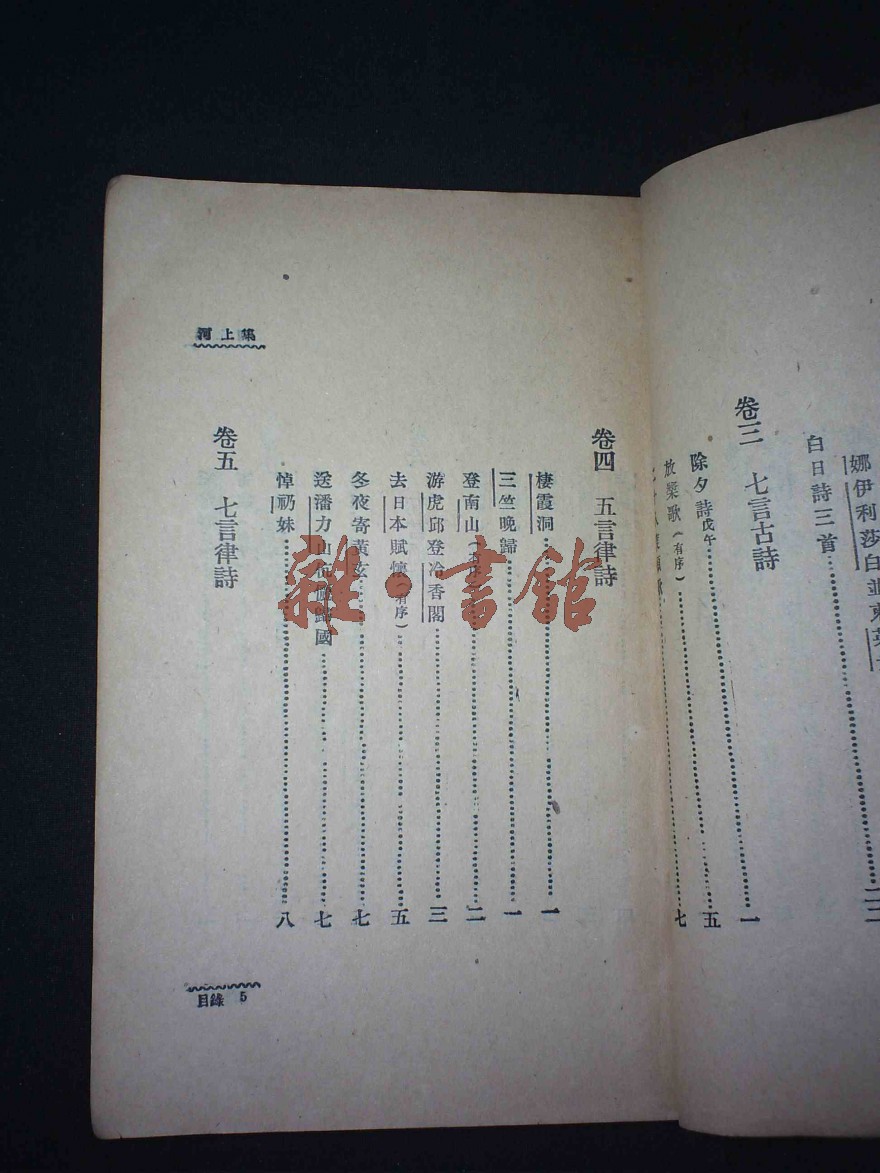 娜伊利莎白並柬英
白日詩三首 二二
卷三 七言古詩
一
除夕詩戊午 五
放槳歌（有序） 七
河上集
卷四 五言律詩
棲霞洞 一
三竺晚歸 一
登南山（有序） 二
游虎邱登冷香閣 三
去日本賦懷（有序） 五
冬夜寄黃玄 七
送潘力山 歸國 七
悼礽妹 八
卷五 七言律詩
目錄 5
雜·書館